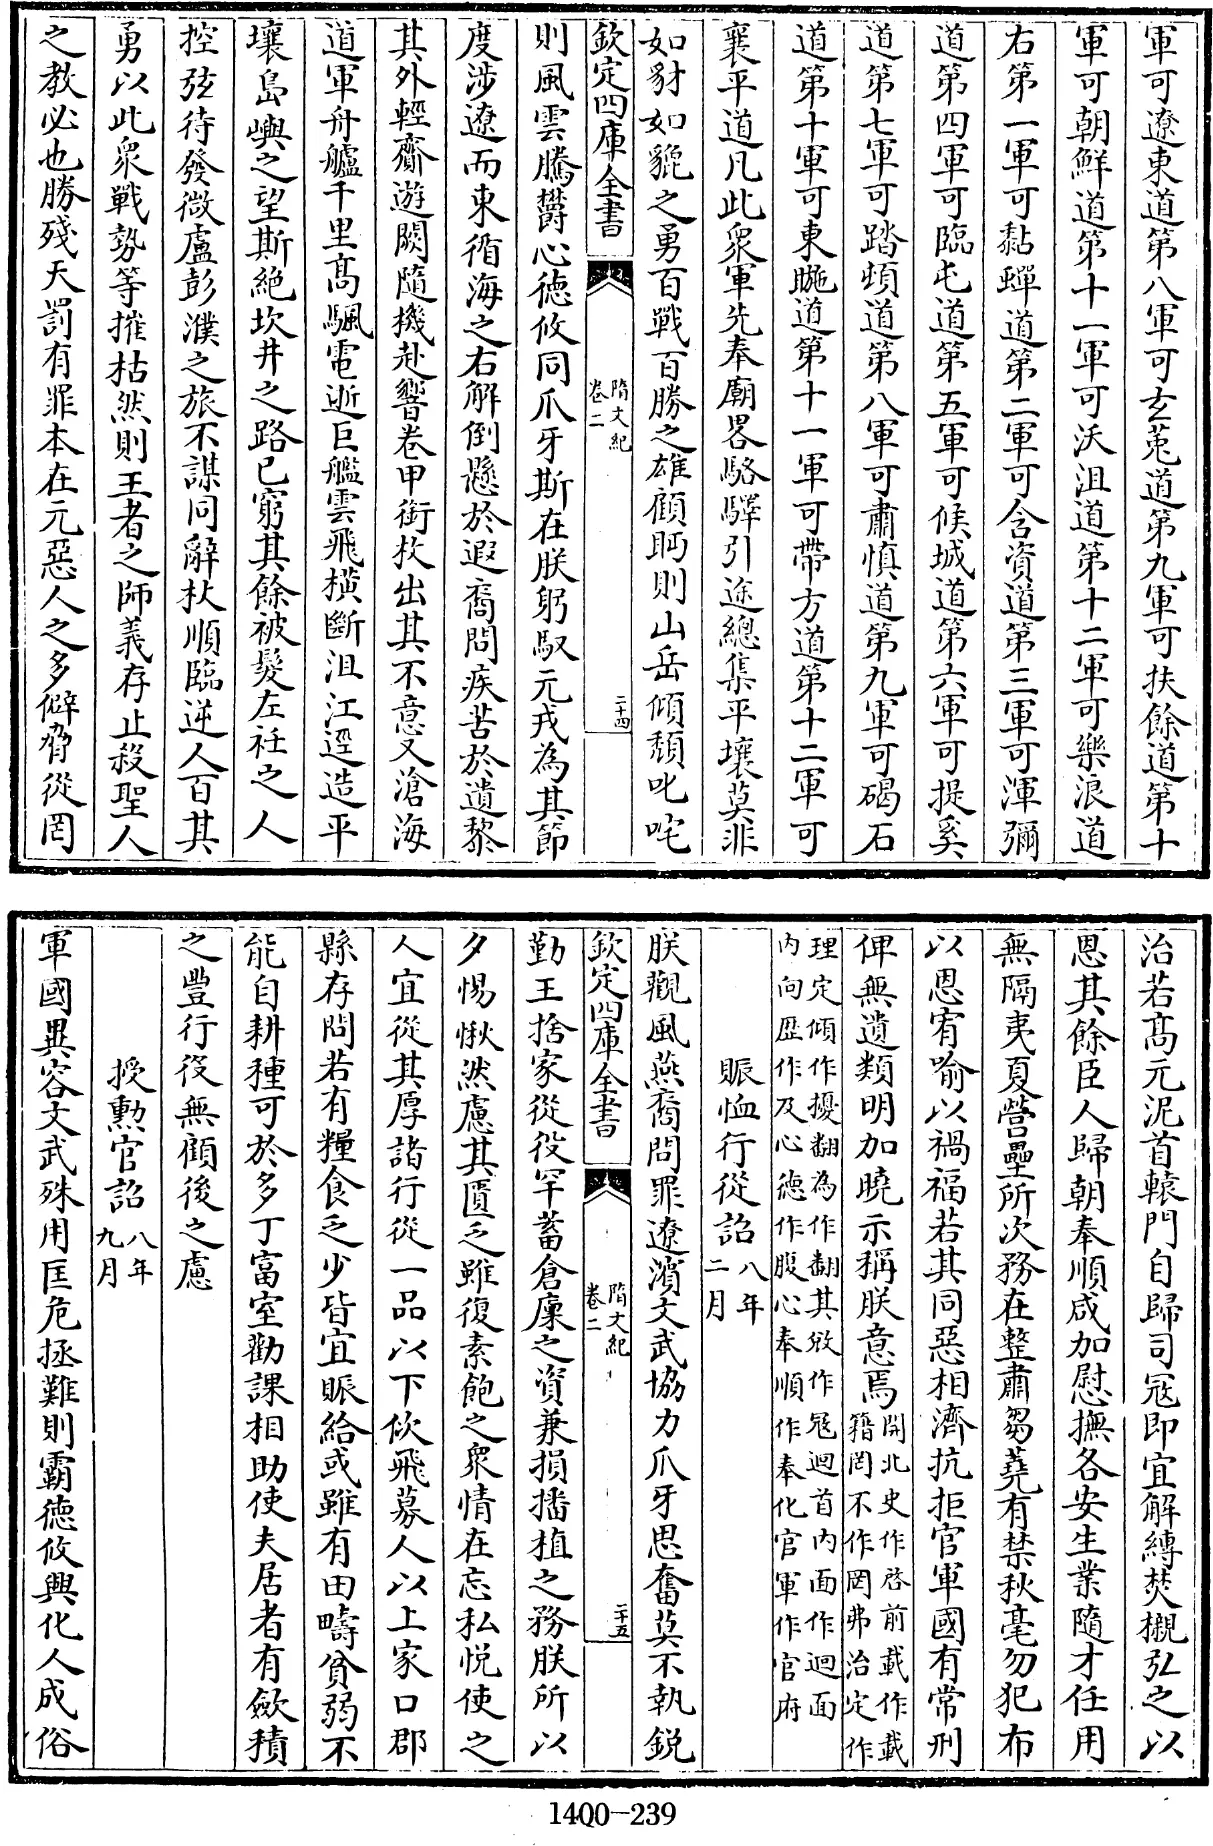 軍可遼東道第八軍可玄菟道第九軍可扶餘道第十
軍可朝鮮道第十一軍可沃沮道第十二軍可樂浪道
右第一軍可黏蟬道第二軍可含資道第三軍可渾彌
道第四軍可臨屯道第五軍可候城道第六軍可提奚
道第七軍可踏頓道第八軍可肅慎道第九軍可碣石
道第十軍可東暆道第十一軍可帶方道第十二軍可
襄平道凡此衆軍先奉廟畧駱驛引途總集平壤莫非
如豺如貔之勇百戰百勝之雄顧眄則山岳傾頹叱咤
欽定四庫全書
隋文紀
卷二
二十四
則風雲騰鬱心德攸同爪牙斯在朕躬馭元戎為其節
度涉遼而東循海之右解倒懸於遐裔問疾苦於遺黎
其外輕齎遊闕隨機赴響卷甲銜枚出其不意又滄海
道軍舟艫千里髙颿電逝巨艦雲飛橫斷沮江逕造平
壤島嶼之望斯絶坎井之路已窮其餘被髮左衽之人
控弦待發微盧彭濮之旅不謀同辭杖順臨逆人百其
勇以此衆戰勢等摧枯然則王者之師義存止殺聖人
之教必也勝殘天罰有罪本在元惡人之多僻脅從罔
治若髙元泥首轅門自歸司冦即宜解縛焚櫬弘之以
恩其餘臣人歸朝奉順咸加慰撫各安生業隨才任用
無隔夷夏營壘所次務在整肅芻蕘有禁秋毫勿犯布
以恩宥喻以禍福若其同惡相濟抗拒官軍國有常刑
俾無遺類明加曉示稱朕意焉
開北史作啓前載作載
籍罔不作罔弗治定作
理定傾作擾翻為作翻其攸作冦迴首内面作迴面
内向歴作及心德作腹心奉順作奉化官軍作官府
賑恤行從詔
八年
二月
朕觀風燕裔問罪遼濱文武協力爪牙思奮莫不執鋭
欽定四庫全書
隋文紀
卷二
二十五
勤王捨家從役罕蓄倉廩之資兼損播植之務朕所以
夕惕愀然慮其匱乏雖復素飽之衆情在忘私悦使之
人宜從其厚諸行從一品以下佽飛募人以上家口郡
縣存問若有糧食乏少皆宜賑給或雖有田疇貧弱不
能自耕種可於多丁富室勸課相助使夫居者有斂積
之豐行役無顧後之慮
授勳官詔
八年
九月
軍國異容文武殊用匡危拯難則霸德攸興化人成俗
1400-239